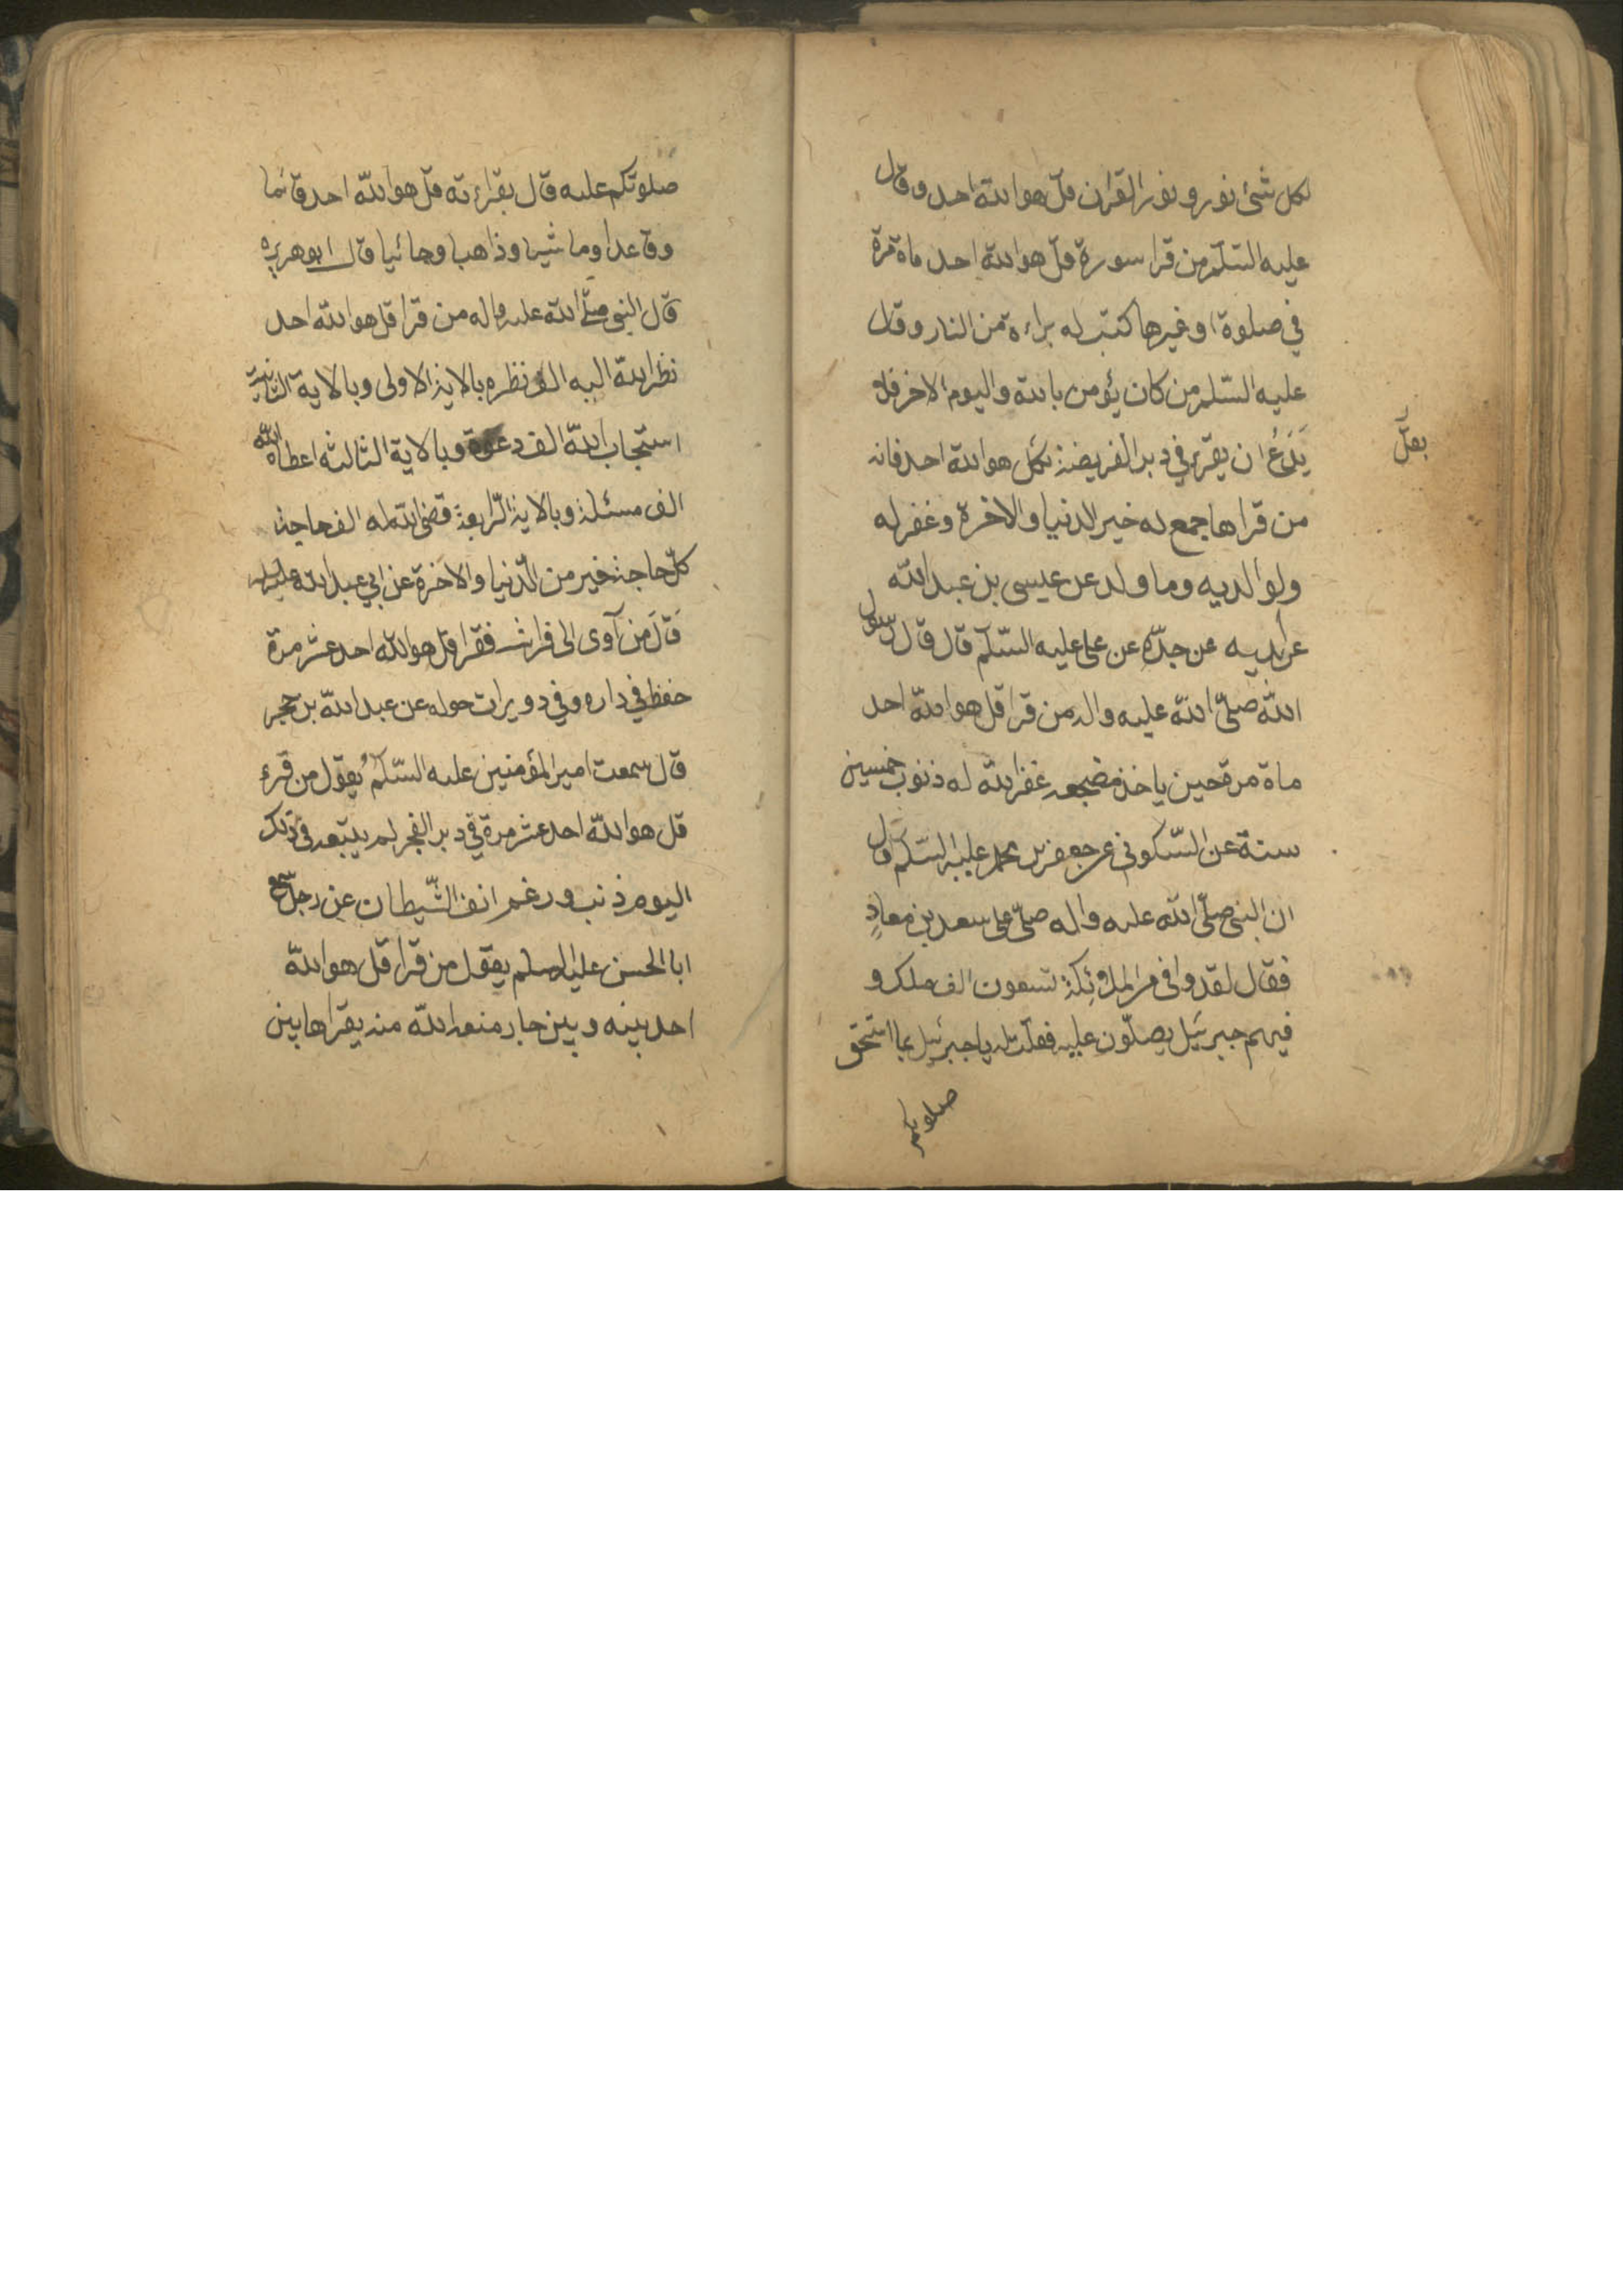 لكل شئ نور و نور القران قل هو الله احد و قال
عليه السّلم من قرا سورة قل هو الله احد ماة مرة
في صلوة او غيرها كتب له براءة من النار و قال
عليه السّلم من كان يؤمن بالله و اليوم الاخر فلا
يَدَعُ ان يقرء في دبر الفريضة بقل هو الله احد فانه
بقل
من قراها جمع له خير الدنيا و الاخرة و غفر له
و لوالديه و ما ولد عن عيسى بن عبد الله
عن ابيه عن جدّه عن علي عليه السّلم قال قال رسول
الله صلّى الله عليه و اله من قرا قل هو الله احد
ماة مرة حين ياخذ مضجعه غفر الله له ذنوب خمسين
سنة عن السّكوني عن جعفر بن محمد عليه السّلم قال
ان النبي صلّى الله عليه و اله صلّى على سعد بن معاذٍ
فقال لقد وافى من الملائكة تسعون الف ملك و
فيهم جبرئيل يصلّون عليه فقلت له يا جبرئيل بما استحق
صلوتكم
صلوتكم عليه قال بقراءته قل هو الله احد قائما
و قاعدا و ماشيا و ذاهبا و جائيا قال ابو هريره
قال النبي صلّى الله عليه و اله من قرا قل هو الله احد
نظر الله اليه الف نظره بالاية الاولى و بالاية الثانية
استجاب الله الف دعوة و بالاية الثالثه اعطاه الله
الف مسئلة و بالاية الرّابعة قضى الله له الف حاجة
كلّ حاجة خير من الدّنيا و الاخرة عن ابي عبد الله عليه السلم
قَالَ مَن آوى الى فراشه فقرا قل هو الله احد عشر مرة
حفظ في داره و في دويرات حوله عن عبد الله بن حجر
قال سمعت امير المؤمنين عليه السّلم يقول من قرء
قل هو الله احد عشر مرة في دبر الفجر لم يتبعه في ذلك
اليوم ذنب و رغم انف الشّيطان عن رجل سمع
ابا الحسن عليه السلم يقول من قرا قل هو الله
احد بينه و بين جبار منعه الله منه يقراها بين